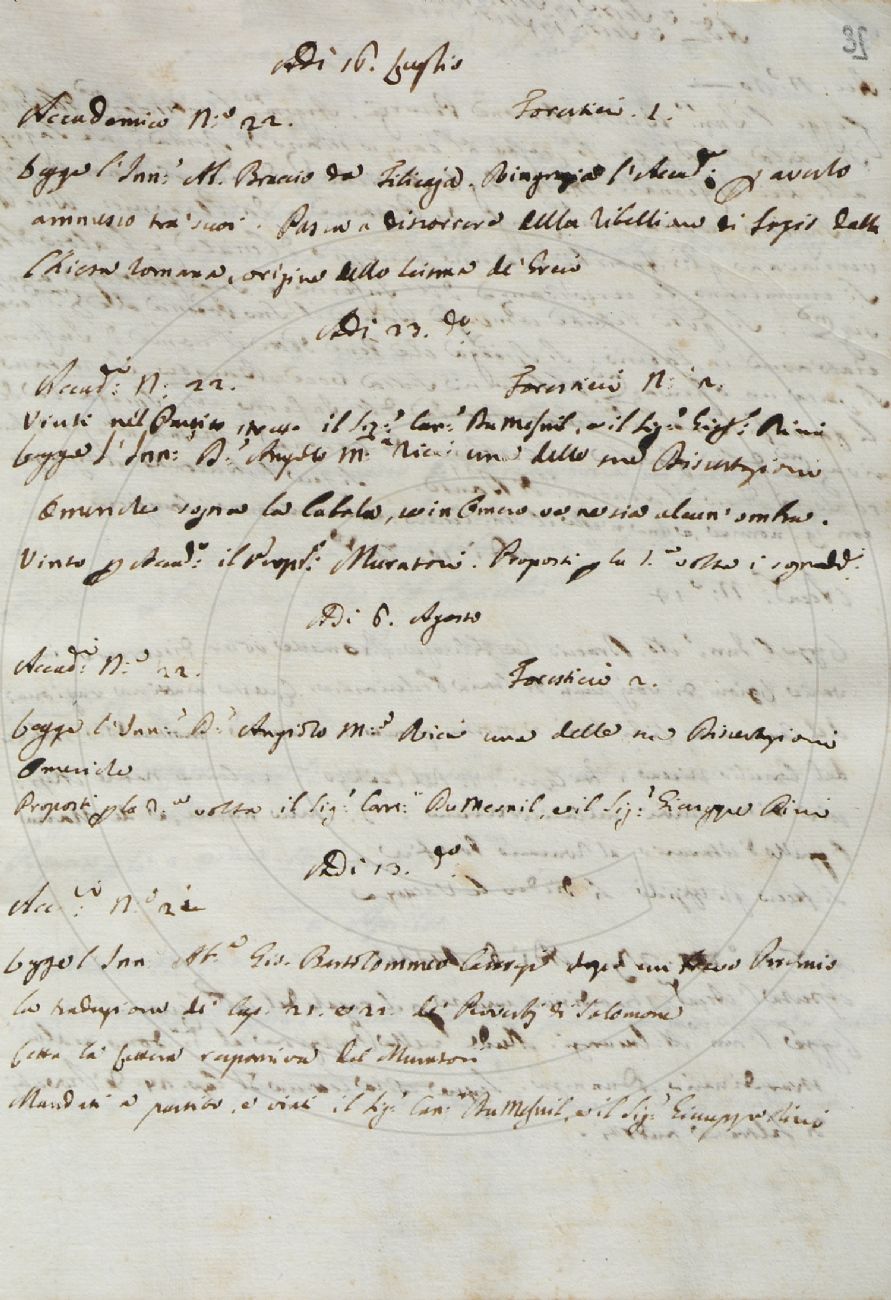 28
Adì 16. Luglio
Accademici N.° 22. Forestieri. 1.
Legge l'Inn.° Ab. Braccio da Filicaja. Ringrazia l'Accad.a p averlo
ammesso tra' suoi. Passa a discorrere della ribellione di dalla
Chiesa romana, origine dello scisma de' Greci
Adì 23. do.
Accad.i N. 22. Forestieri N. 2.
Vinti nel Partito il Sig.r Cav.r DuMesnil, e il Sig.r Gius.e Rini
Legge l'Inn.° D.r Angelo M.a Ricci una delle sue Dissertazioni
Omeriche sopra la Cabala, se in Omero ve ne sia alcun'ombra.
Vinto p Accad.o il Muratori. Proposti p la 1.a volta i sopradd.i
Adì 6. Agosto
Accad.i N.° 22. Forestieri 2.
Legge l'Inn.° D.r Angiolo M.a Ricci una delle sue Dissertazioni
Omeriche
Proposti p la 2.a volta il Sig.r Cav.r DuMesnil, e il Sig.r Giuseppe Rini
Adì 13. do.
Acc.i N.° 22
Legge l'Inn. Ab.e Gio. Bartolommeo dopo un breve Proemio
la traduzione de' Cap. 21. e 22. de' Proverbj di Salomone
Letta la lettera responsiva del Muratori
Mandati a partito, e vinti il Sig.r Cav.r DuMesnil, e il Sig.r Giuseppe Rini